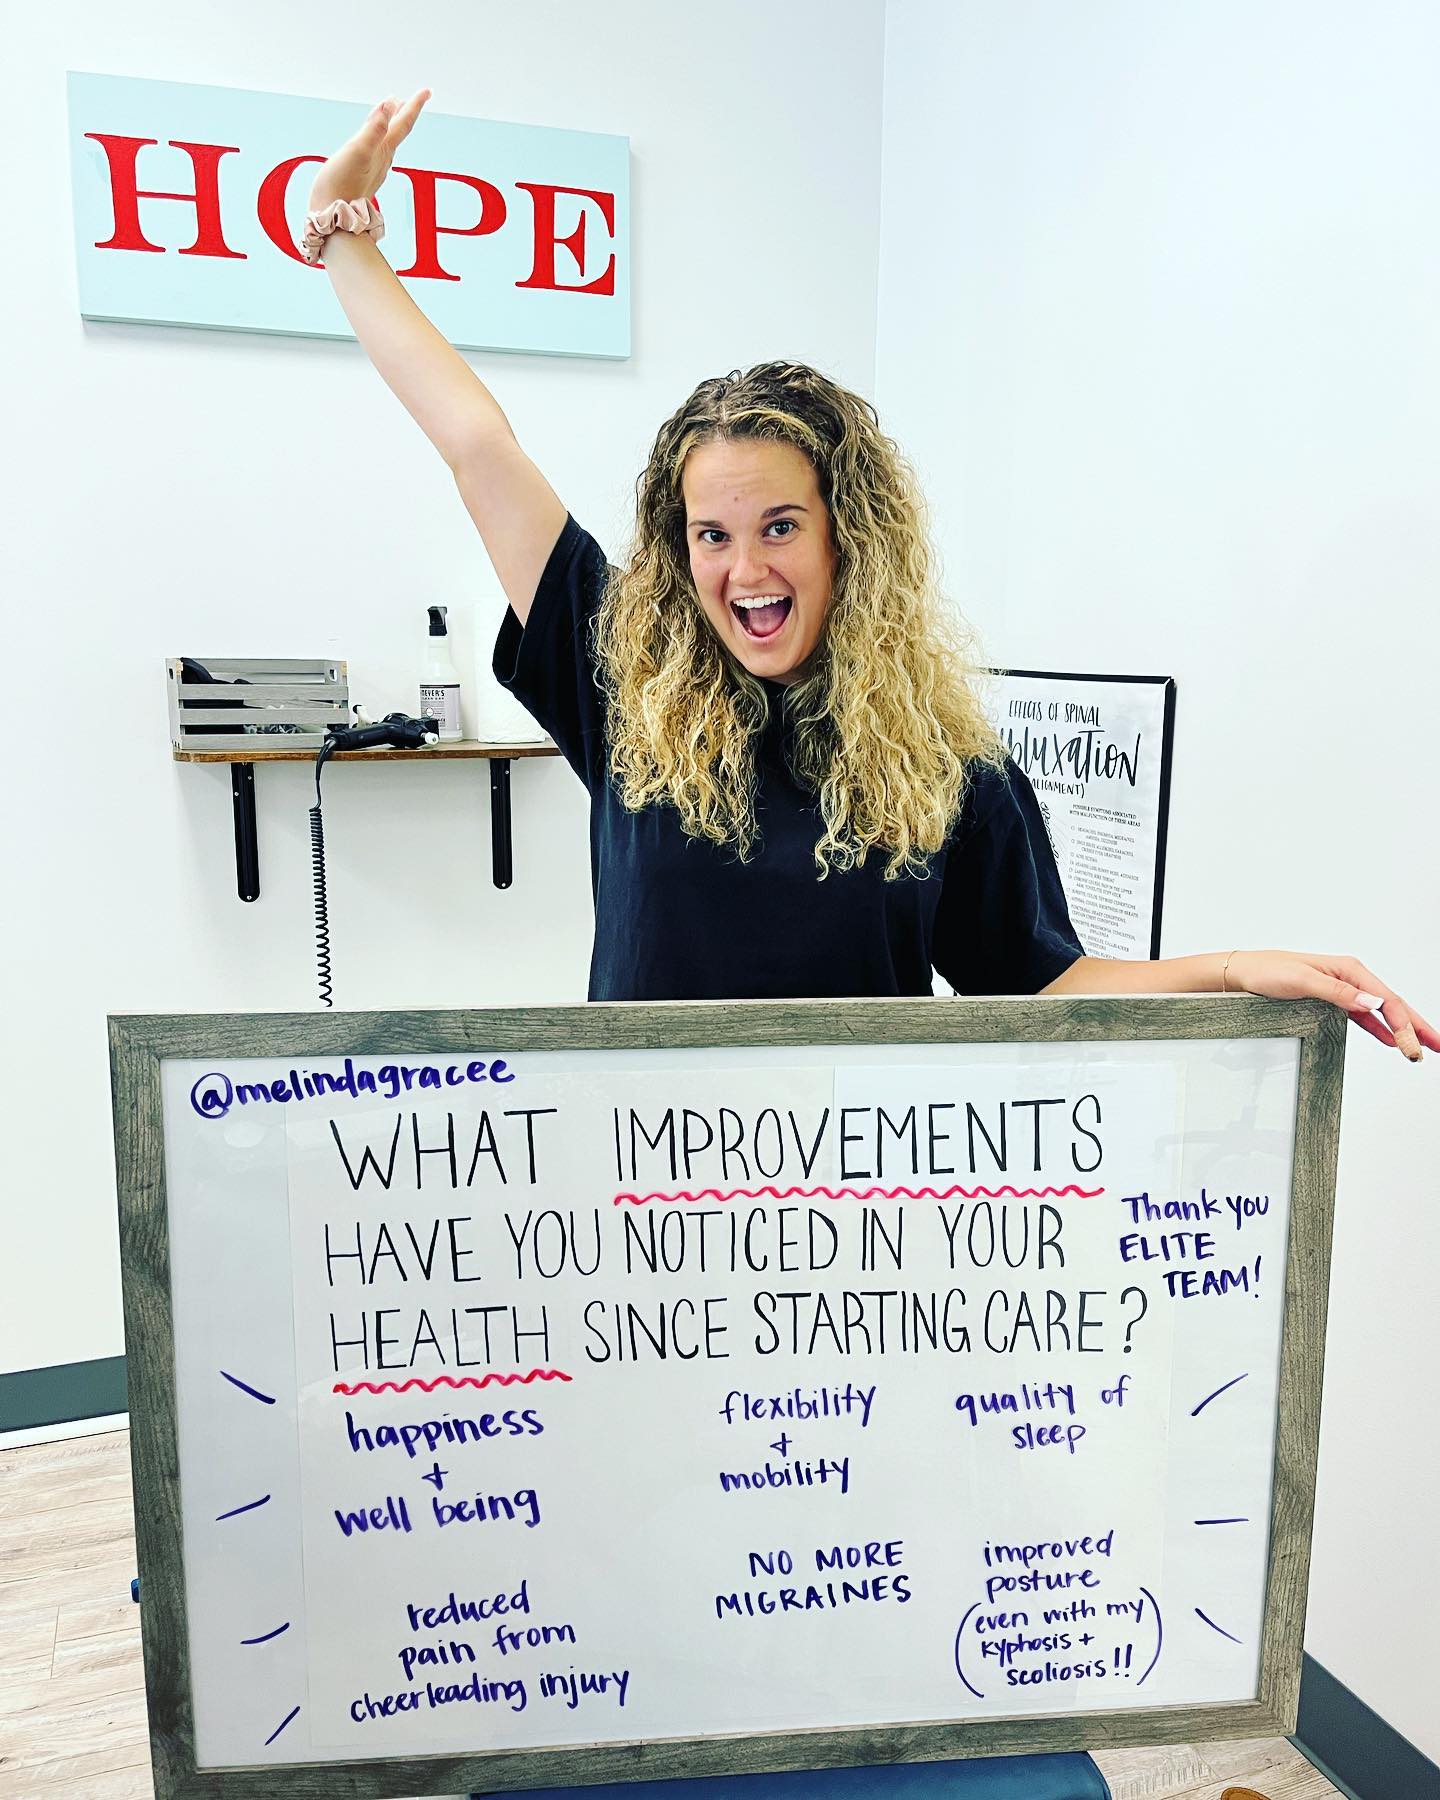 HOPE
MEYER'S
CLEAN DAY
EFFECTS OF SPINAL
POSSIBLE SYMPTOMS ASSOCIATED
WITH MALFUNCTION OF THESE AREAS
@melindagracee
WHAT IMPROVEMENTS
HAVE YOU NOTICED IN YOUR
HEALTH SINCE STARTING CARE?
Thank you
ELITE
TEAM!
happiness
+
well being
flexibility
+
mobility
quality of
sleep
reduced
pain from
cheerleading injury
NO MORE
MIGRAINES
improved
posture
(even with my
kyphosis +
scoliosis!!)